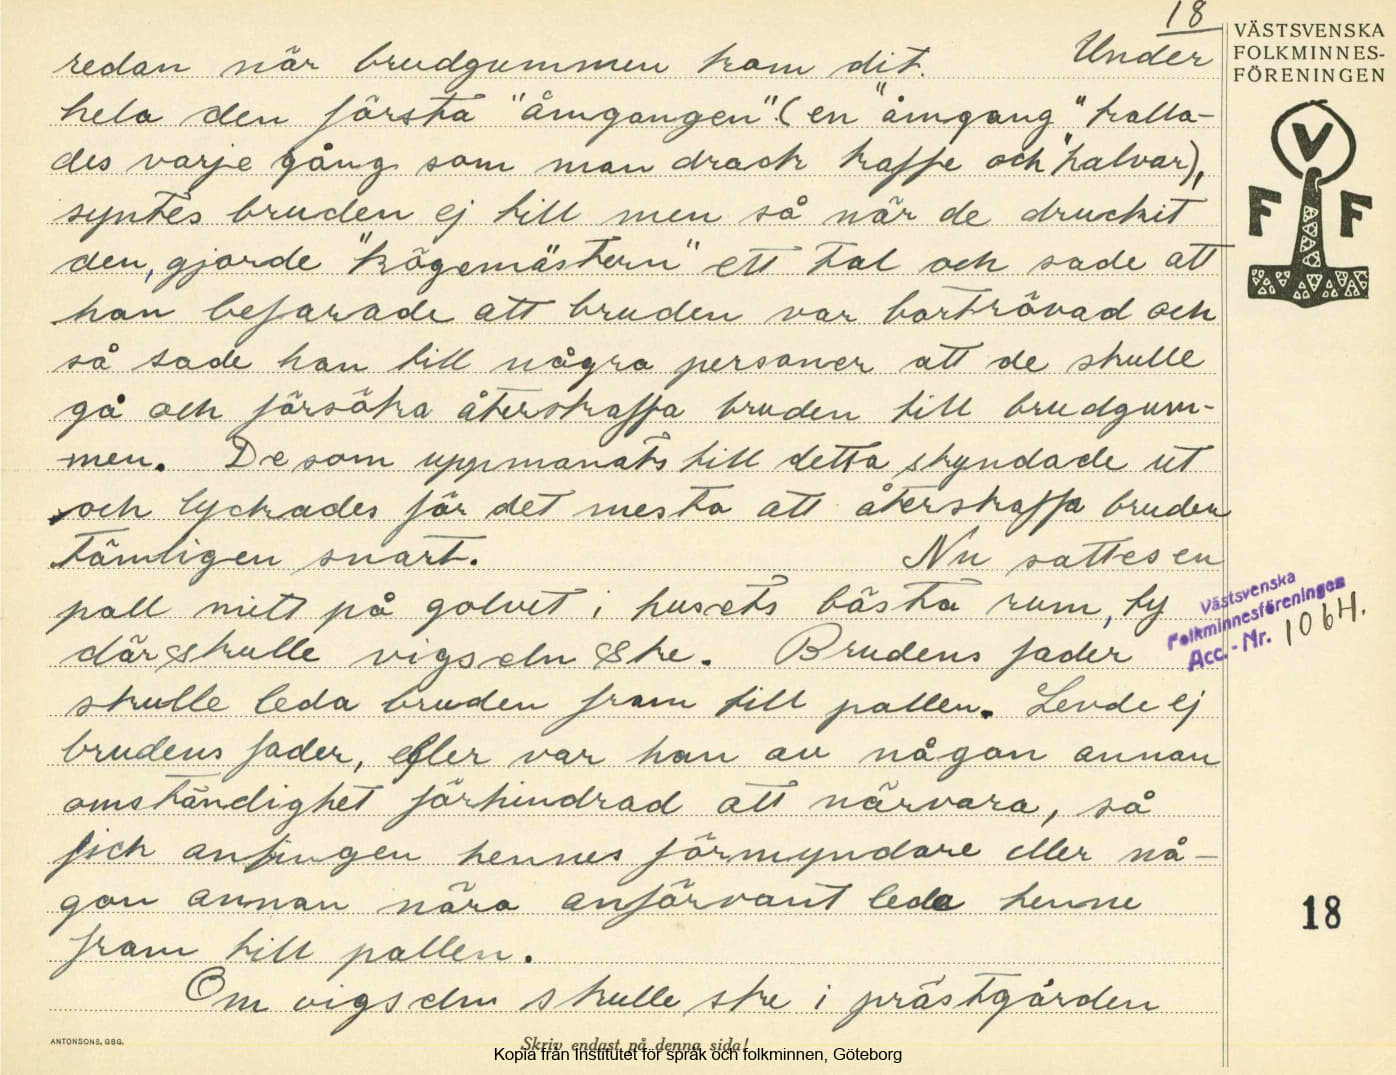 18
VÄSTSVENSKA
FOLKMINNES-
FÖRENINGEN
V
F F
redan när brudgummen kom dit. Under
hela den första "åmgangen". (en "åmgang" kalla-
des varje gång som man drack kaffe och "halvar),
syntes bruden ej till men så när de druckit
den, gjorde "kögemästern" ett tal och sade att
han befarade att bruden var bortrövad och
så sade han till några personer att de skulle
gå och försöka återskaffa bruden till brudgum-
men. De som uppmanats till detta skyndade ut
och lyckades för det mesta att återskaffa bruden
tämligen snart. Nu sattes en
pall mitt på golvet i husets bästa rum, ty
där skulle vigseln ske. Brudens fader
skulle leda bruden fram till pallen. Levde ej
brudens fader, eller var han av någon annan
omständighet förhindrad att närvara, så
fick antingen hennes förmyndare eller nå-
gon annan nära anförvant leda henne
fram till pallen.
Om vigseln skulle ske i prästgården
Västsvenska
Folkminnesföreningen
Acc.-Nr. 1064.
18
ANTONSONS, GBG.
Skriv endast på denna sida!
Kopia från Institutet för språk och folkminnen, Göteborg